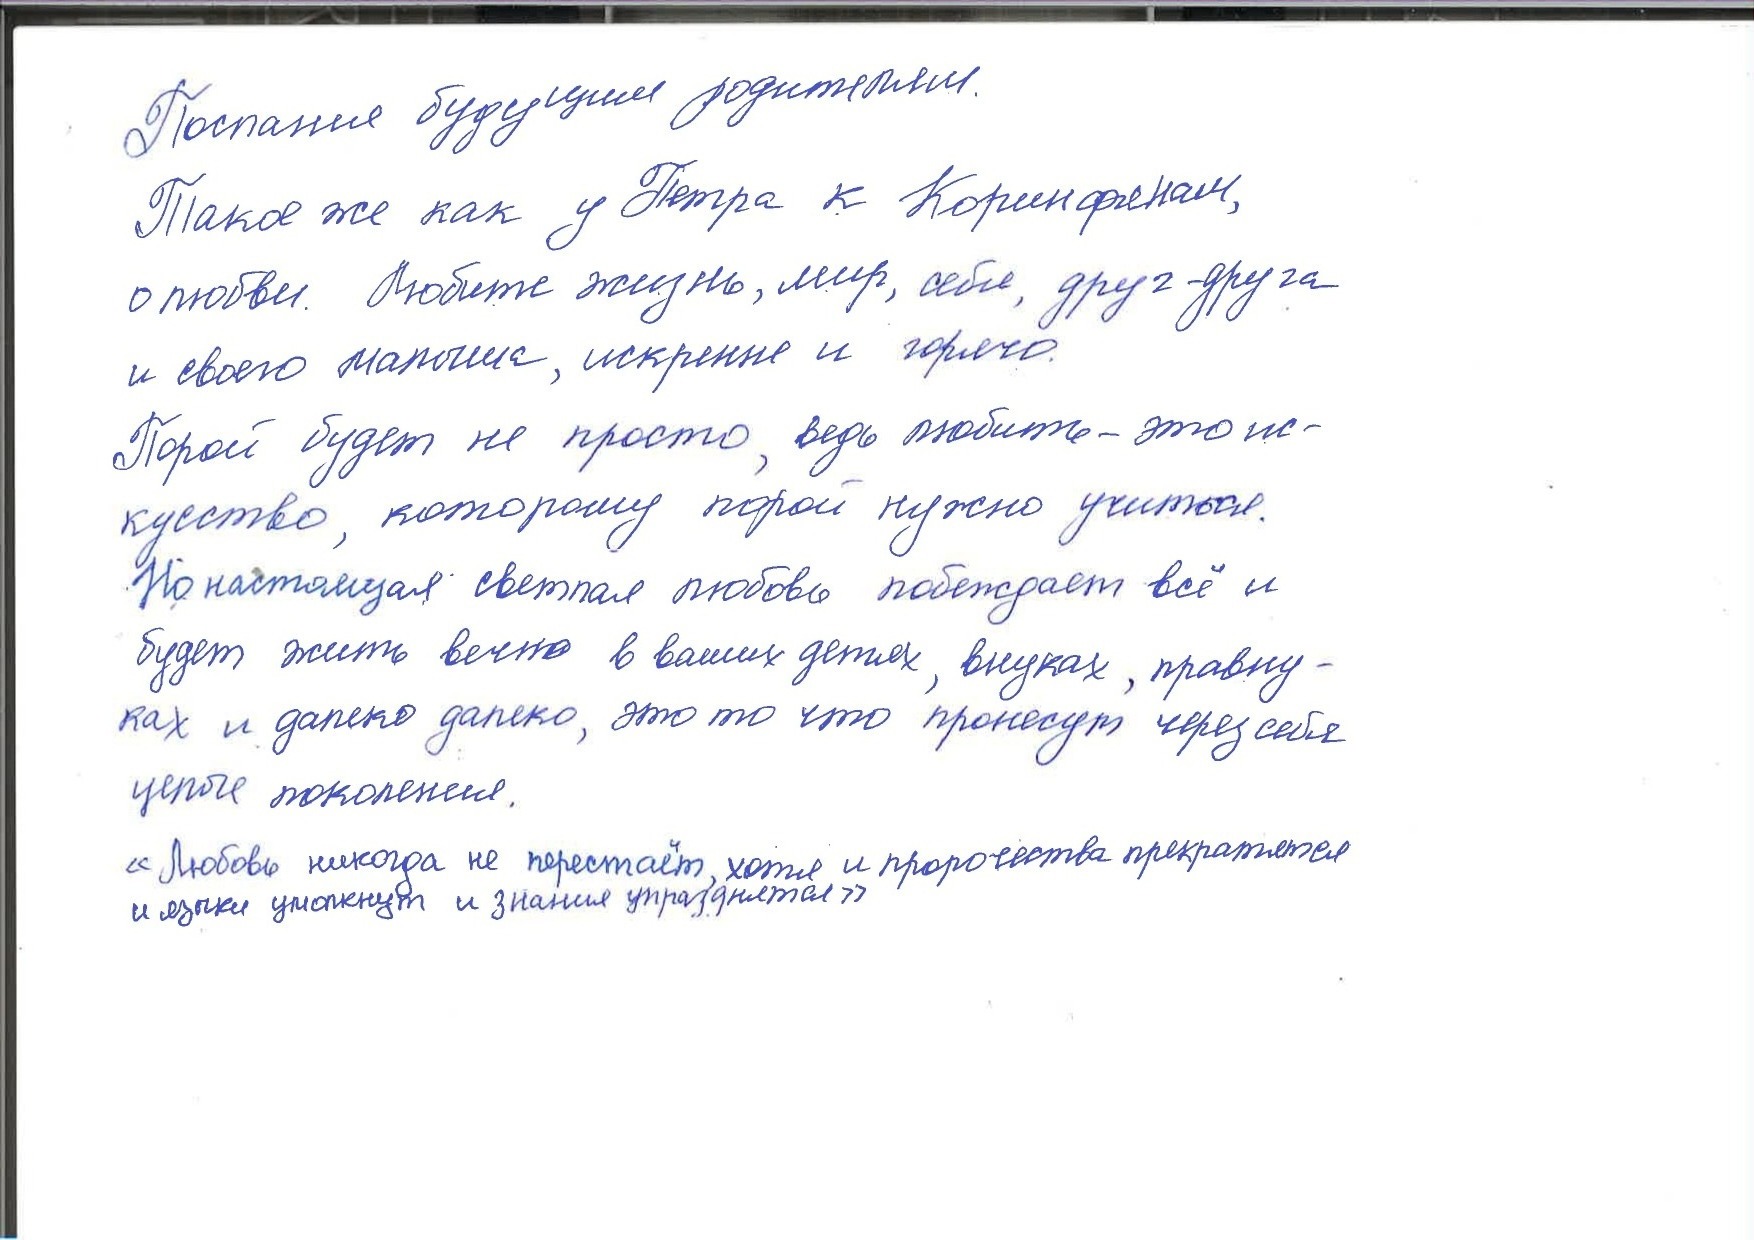 Послание будущим родителям.
Такое же как у Петра к Коринфянам,
о любви. Любите жизнь, мир, себя, друг-друга
и своего малыша, искренне и горячо.
Порой будет не просто, ведь любить - это ис-
кусство, которому порой нужно учиться.
Но настоящая светлая любовь побеждает всё и
будет жить вечно в ваших детях, внуках, правну-
ках и далеко далеко, это то что пронесут через себя
целые поколения.
«Любовь никогда не перестаёт, хотя и пророчества прекратятся
и языки умолкнут и знания упразднятся»